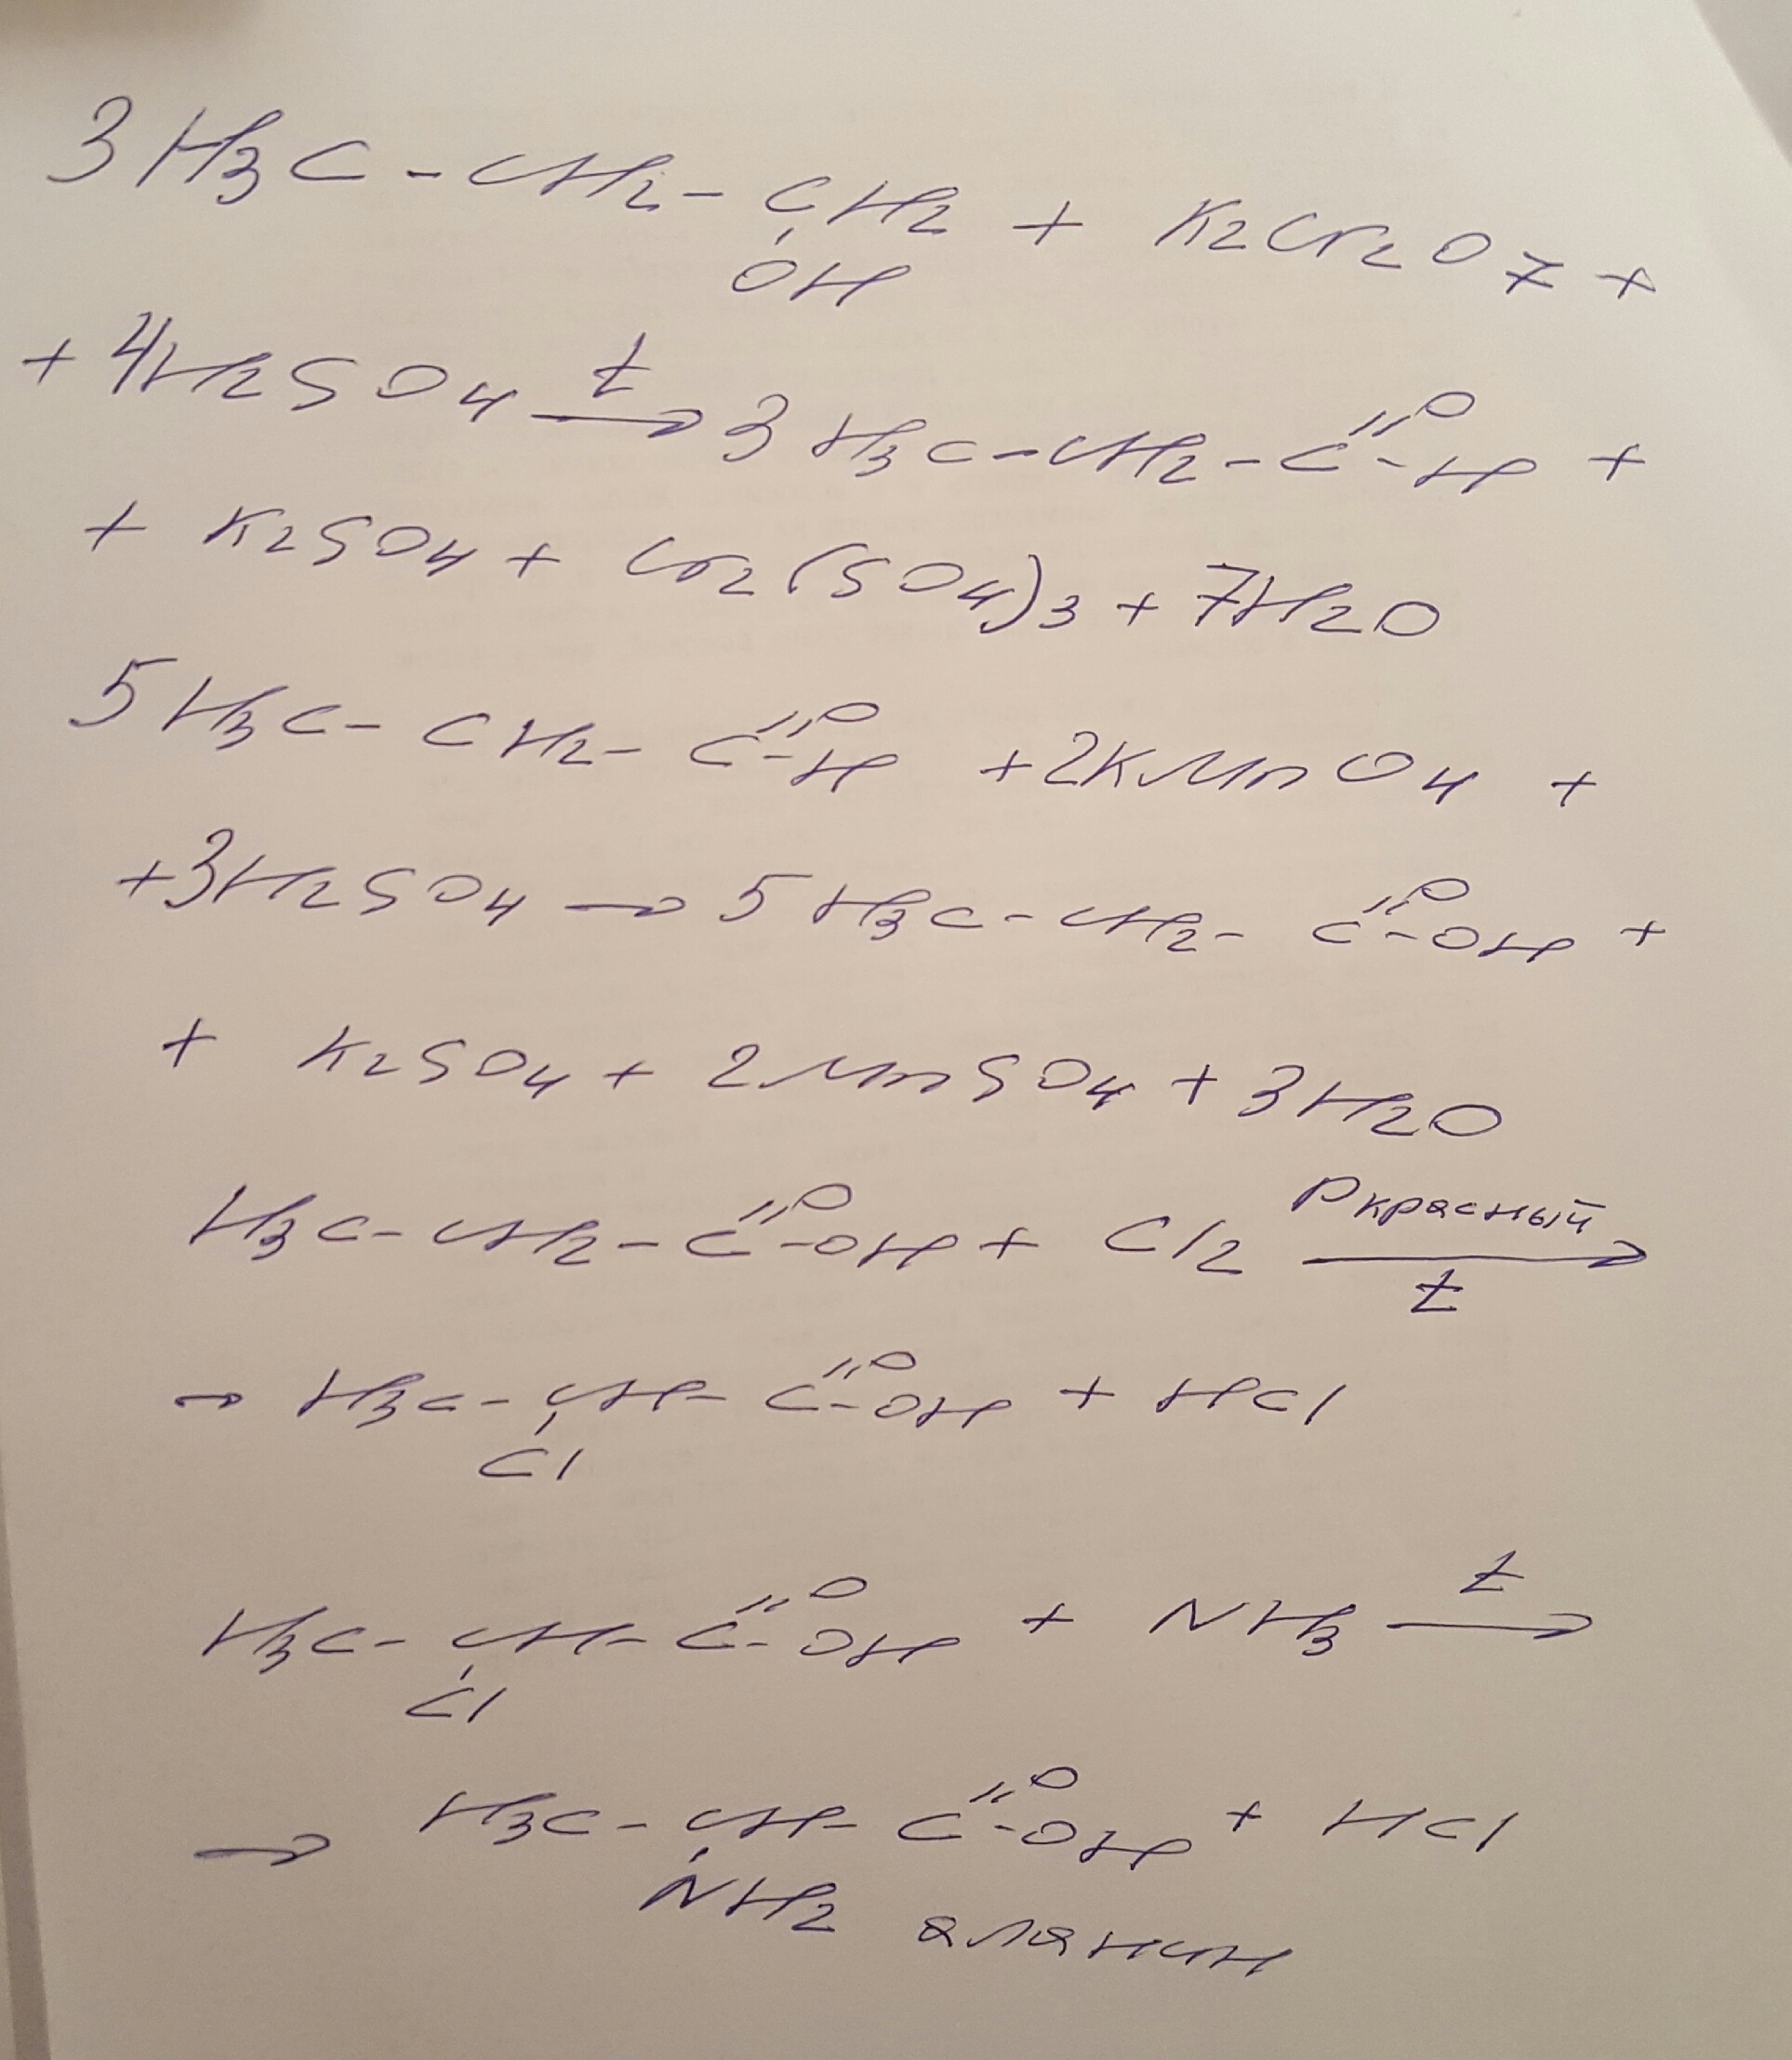 3 H3C - CH2 - CH2 + K2Cr2O7 +
OH
+ 4H2SO4 t → 3 H3C - CH2 - C =O - H +
+ K2SO4 + Cr2(SO4)3 + 7H2O
5 H3C - CH2 - C =O - H + 2KMnO4 +
+ 3H2SO4 → 5 H3C - CH2 - C =O - OH +
+ K2SO4 + 2MnSO4 + 3H2O
H3C - CH2 - C =O - OH + Cl2 P красный → t
→ H3C - CH - C =O - OH + HCl
Cl
H3C - CH - C =O - OH + NH3 t →
Cl
→ H3C - CH - C =O - OH + HCl
NH2 аланин